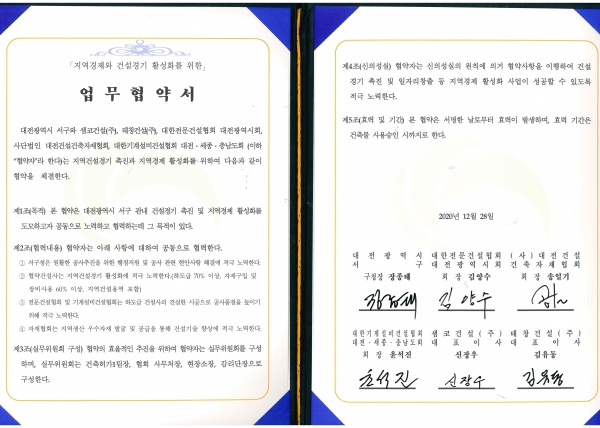 「지역경제와 건설경기 활성화를 위한」
업 무 협 약 서
대전광역시 서구와 샘코건설(주), 태창건설(주), 대한전문건설협회 대전광역시회,
사단법인 대전건설건축자재협회, 대한기계설비건설협회 대전·세종·충남도회 (이하
"협약자"라 한다)는 지역건설경기 촉진과 지역경제 활성화를 위하여 다음과 같이
협약을 체결한다.
제1조(목적) 본 협약은 대전광역시 서구 관내 건설경기 촉진 및 지역경제 활성화를
도모하고자 공동으로 노력하고 협력하는데 그 목적이 있다.
제2조(협력내용) 협약자는 아래 사항에 대하여 공동으로 협력한다.
① 서구청은 원활한 공사추진을 위한 행정지원 및 공사 관련 현안사항 해결에 적극 노력한다.
② 협약건설사는 지역건설경기 활성화에 적극 노력한다.(하도급 70% 이상, 자재구입 및
장비사용 60% 이상, 지역건설용역 포함)
③ 전문건설협회 및 기계설비건설협회는 하도급 건설사의 견실한 시공으로 공사품질을 높이기
위해 적극 노력한다.
④ 자재협회는 지역생산 우수자재 발굴 및 공급을 통해 건설기술 향상에 적극 노력한다.
제3조(실무위원회 구성) 협약의 효율적인 추진을 위하여 협약자는 실무위원회를 구성
하며, 실무위원회는 건축허가1팀장, 협회 사무처장, 현장소장, 감리단장으로
구성한다.
제4조(신의성실) 협약자는 신의성실의 원칙에 의거 협약사항을 이행하여 건설
경기 촉진 및 일자리창출 등 지역경제 활성화 사업이 성공할 수 있도록
적극 노력한다.
제5조(효력 및 기간) 본 협약은 서명한 날로부터 효력이 발생하며, 효력 기간은
건축물 사용승인 시까지로 한다.
2020년 12월 28일
대 전 광 역 시 대한전문건설협회 (사) 대전건설
서 구 대전광역시회 건축자재협회
구청장 장종태 회 장 김양수 회 장 송일기
김 양 수
대한기계설비건설협회 샘코건설(주) 태창건설(주)
대전·세종·충남도회 대 표 이 사 대 표 이 사
회 장 윤석진 신장우 김유동